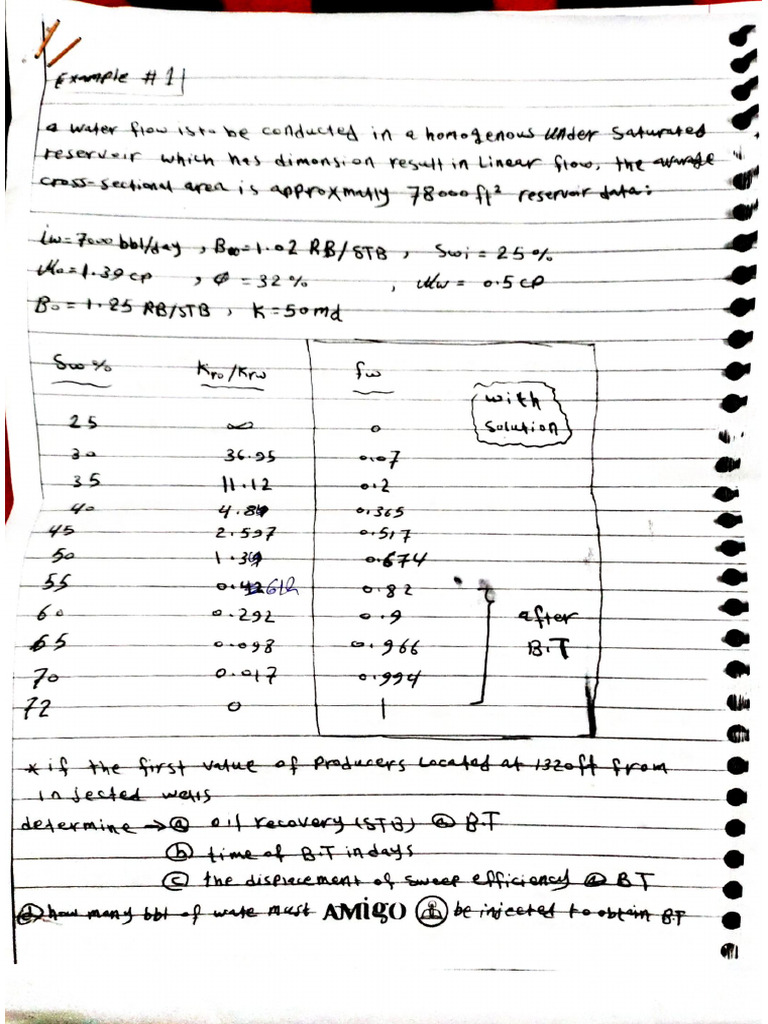 Example #1
a water flow is to be conducted in a homogenous under saturated
reservoir which has dimension result in Linear flow. the average
cross-sectional area is approxmatly 78000 ft² reservoir data:
iw=7000 bbl/day , B=1.02 RB/STB , Swi = 25%
Mo=1.39 cp , φ = 32% , Mw = 0.5 cp
Bo = 1.25 RB/STB , K = 50 md
Sw% Kro/Krw fw
with
solution
25 ∞ 0
30 36.95 0.07
35 11.12 0.2
40 0.365
45 2.597 0.517
50 0.674
55 0.82
60 0.292 0.9 after
65 0.098 0.966 B.T
70 0.017 0.994
72 0 1
* if the first value of producers Located at 1320 ft from
injected wells
determine → (a) oil recovery (STB) @ B.T
(b) time of B.T in days
(c) the displacement of sweep efficiency @ BT
(d) how many bbl of wate must AMIGO be injected to obtain B.T